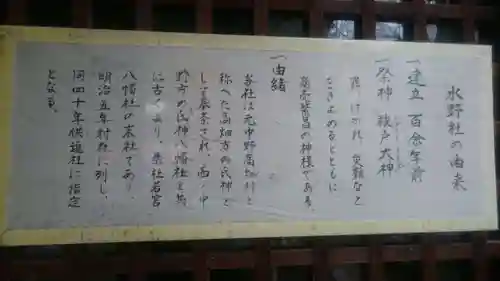 水野社の由来
一建立 百余年前
一祭神 祓戸大神
罪、けがれ、災難など
をきよめるとともに
商売繁昌の神様である。
一由緒
当社は元中野高畑村と
称へた高畑方の氏神と
して奉斎され、西ノ中
野方の氏神八幡社と共
に古くあり、無社若宮
八幡社の末社であり、
明治五年村社に列し、
同四十年供進社に指定
となる。